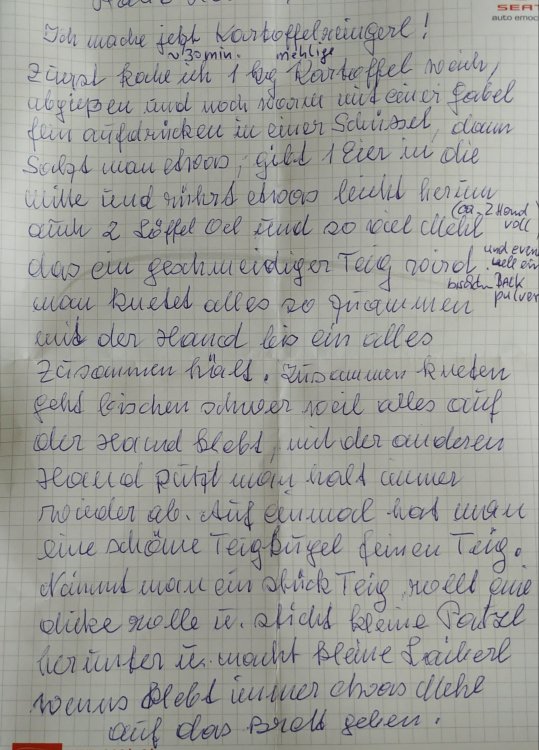 SEAT
auto emoc
Ich mache jetzt Kartoffelkringerl!
~ 30 min. mehlige
Zuerst koche ich 1 kg Kartoffel weich,
abgießen und noch warm mit einer Gabel
fein aufdrücken in einer Schüssel, dann
Salzt man etwas, gibt 1 Eier in die
mitte und rührt etwas leicht herum
auch 2 Löffel Oel und so viel Mehl (ca. 2 Hand voll)
das ein geschmeidiger Teig wird. und even
bischen Back pulver
man knetet alles so zusammen
mit der Hand bis ein alles
zusammen hält. Zusammen kneten
geht bischen schwer weil alles auf
der Hand klebt, mit der anderen
Hand putzt man halt immer
wieder ab. Auf einmal hat man
eine schöne Teigkugel feinen Teig.
Nimmt man ein stück Teig, rollt eine
dicke rolle u. sticht kleine Patzl
herunter u. macht kleine Laiberl
wenns klebt immer etwas Mehl
auf das Brett geben.